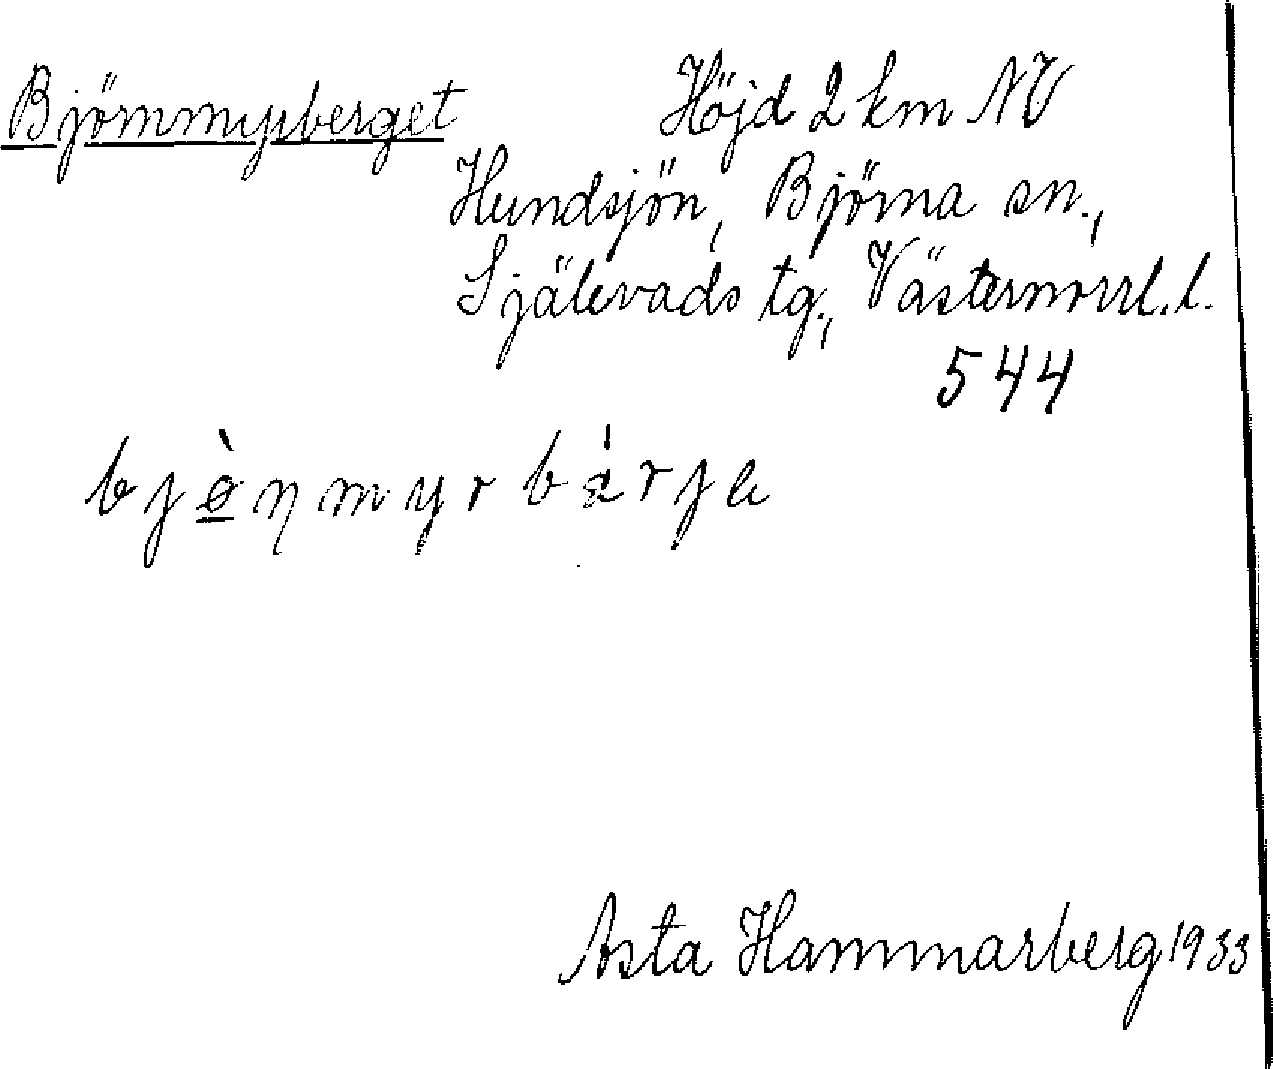 Björnmyrberget
Höjd 2 km NV
Hundsjön, Björna sn.,
Själevads tg., Västernorrl. l.
544
bjø̀ŋmyrbærje
Asta Hammarberg 1933